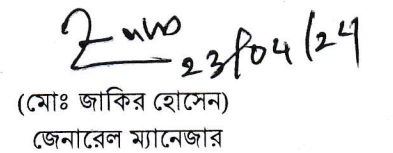 23/04/24
(মোঃ জাকির হোসেন)
জেনারেল ম্যানেজার